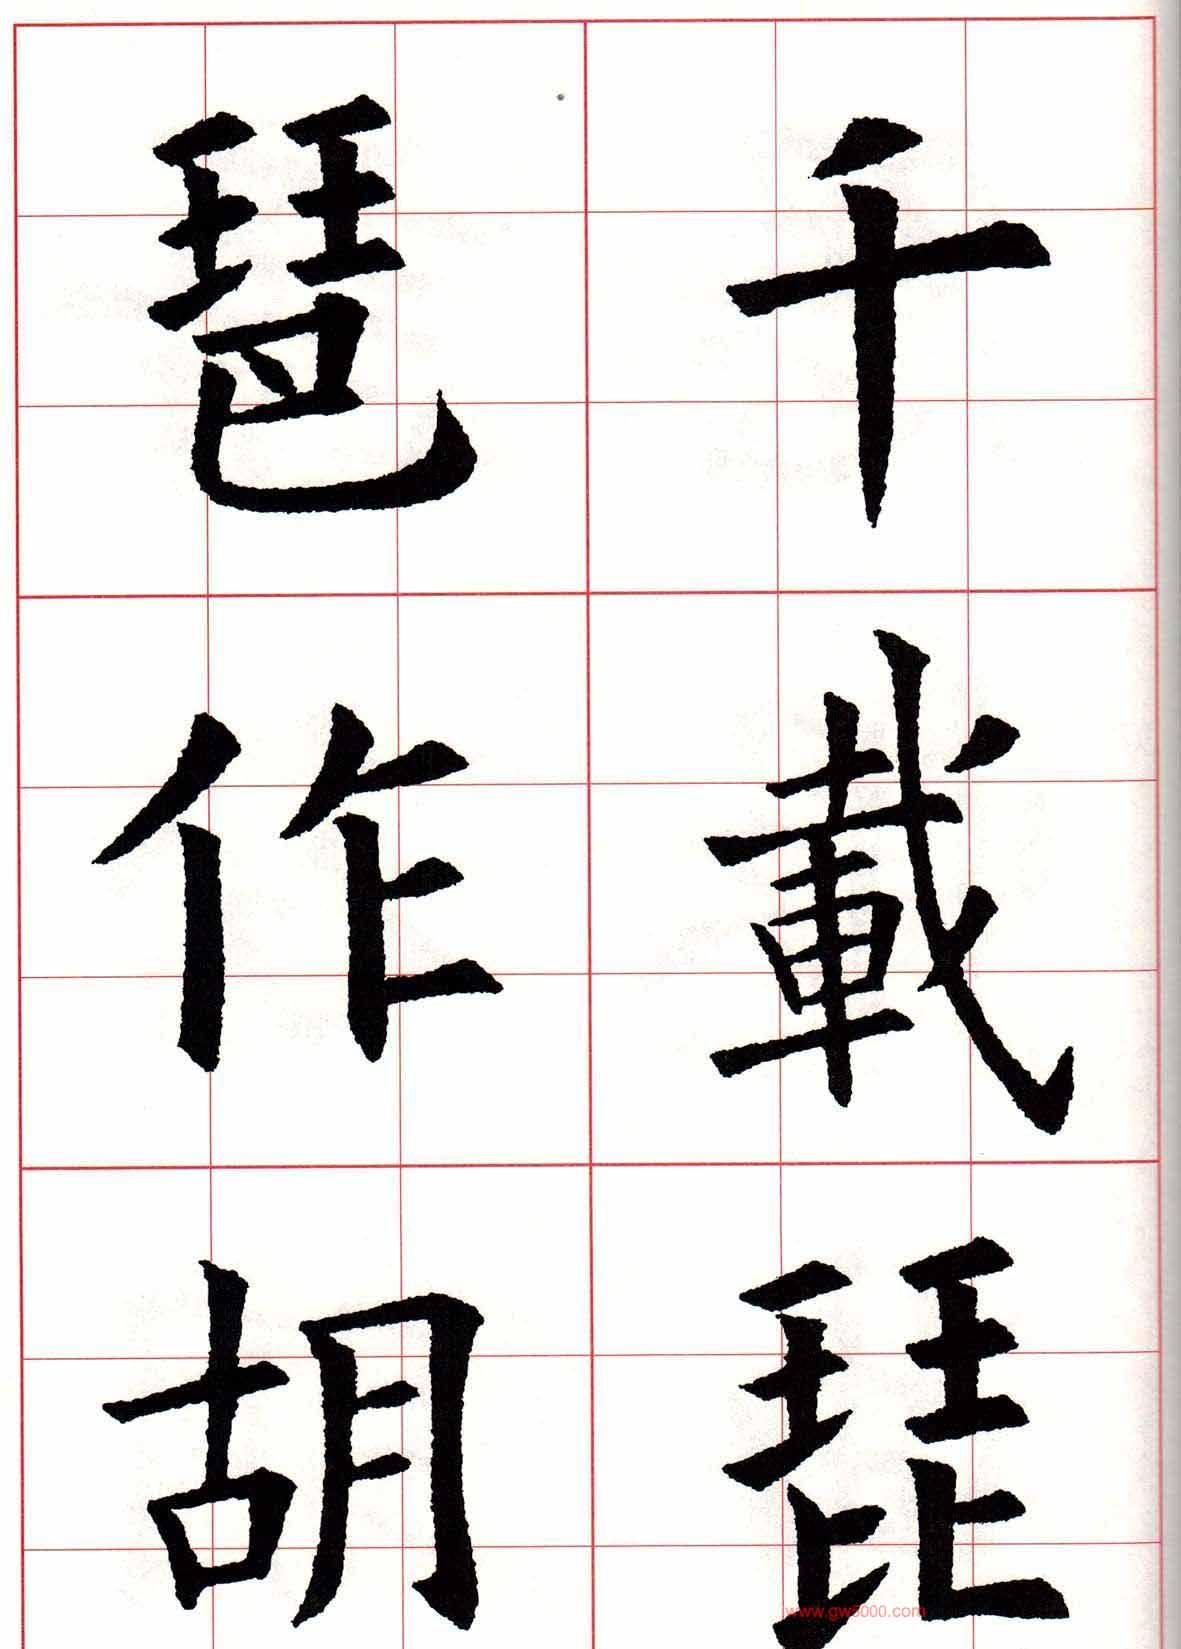 千載琵
琶作胡
www.gw5000.com